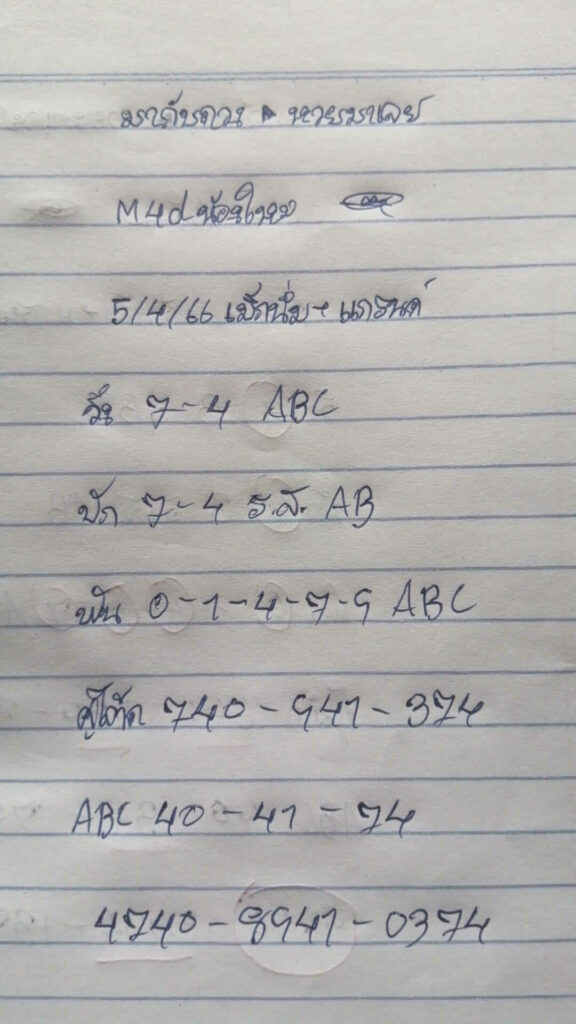 มากับดวง หวยมาเลย์
M4d น้องใหม่
5/4/66 แม็กนั่ม + แกรนด์
วิ่ง 7-4 ABC
ปัก 7-4 ร.ส. AB
ฟัน 0-1-4-7-9 ABC
คู่โต๊ด 740-941-374
ABC 40-41-74
4740-8941-0374